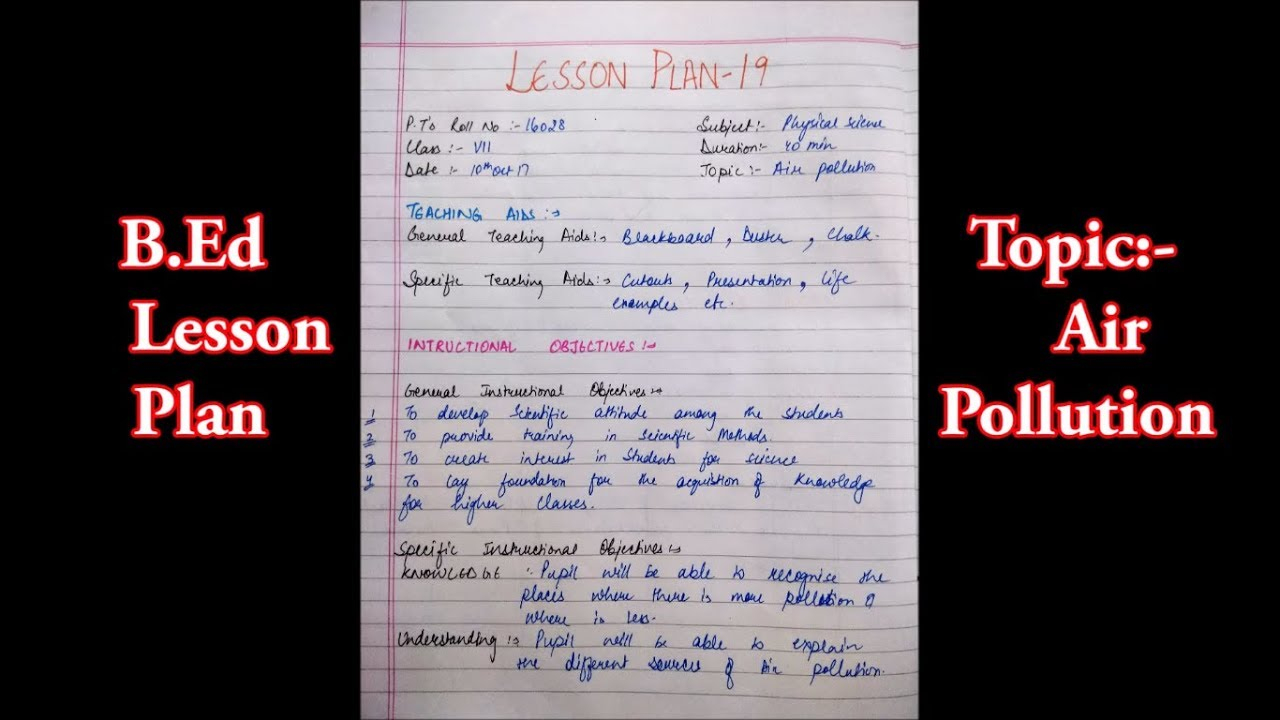 B.Ed
Lesson
Plan
LESSON PLAN-19
P.T's Roll No :- 16028
Class :- VII
Date :- 10th Oct 17
Subject:- Physical science
Duration:- 40 min
Topic:- Air pollution
TEACHING AIDS :->
General Teaching Aids:-> Blackboard, Duster, Chalk.
Specific Teaching Aids:-> Cutouts, Presentation, Life
examples etc.
INTRUCTIONAL OBJECTIVES :->
General Instructional Objectives:->
1 To develop Scientific attitude among the students
2 To provide training in Scientific Methods.
3 To create interest in Students for science
4 To lay foundation for the acquistion of Knowledge
for higher classes.
Specific Instructional Objectives:->
KNOWLEDGE :- Pupil will be able to recognise the
places where there is more pollution &
where is less.
Understanding :-> Pupil will be able to explain
the different sources of Air pollution.
Topic:-
Air
Pollution